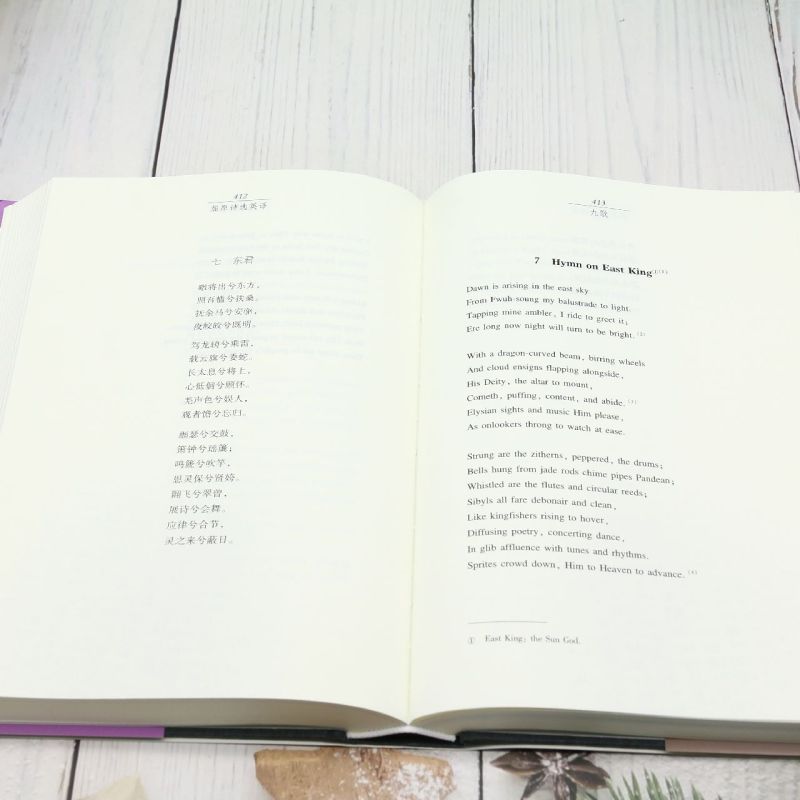 412
屈原诗选英译
七 东君
暾将出兮东方，
照吾槛兮扶桑。
抚余马兮安驱，
夜皎皎兮既明。
驾龙辀兮乘雷，
载云旗兮委蛇。
长太息兮将上，
心低徊兮顾怀。
羌声色兮娱人，
观者憺兮忘归。
緪瑟兮交鼓，
箫钟兮瑶簴；
鸣篪兮吹竽，
思灵保兮贤姱。
翾飞兮翠曾，
展诗兮会舞。
应律兮合节，
灵之来兮蔽日。
413
九歌
7 Hymn on East King①[1]
Dawn is arising in the east sky
From Fwuh-soung my balustrade to light.
Tapping mine ambler, I ride to greet it;
Ere long now night will turn to be bright. [2]
With a dragon-curved beam, birring wheels
And cloud ensigns flapping alongside,
His Deity, the altar to mount,
Cometh, puffing, content, and abide. [3]
Elysian sights and music Him please,
As onlookers throng to watch at ease.
Strung are the zitherns, peppered, the drums;
Bells hung from jade rods chime pipes Pandean;
Whistled are the flutes and circular reeds;
Sibyls all fare debonair and clean,
Like kingfishers rising to hover,
Diffusing poetry, concerting dance,
In glib affluence with tunes and rhythms.
Sprites crowd down, Him to Heaven to advance. [4]
① East King: the Sun God.